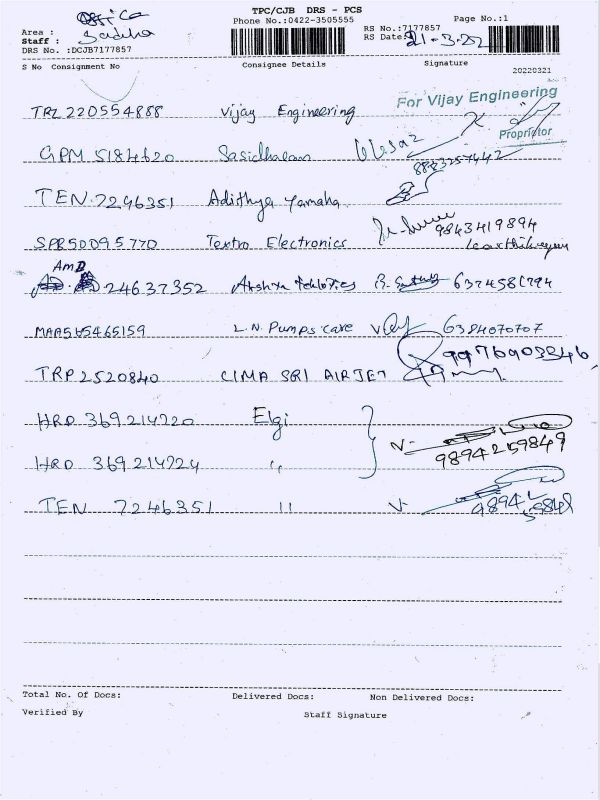 TPC/CJB DRS - PCS
Phone No.:0422-3505555
Page No.:1
Area : Office
RS No.:7177857
Staff :
RS Date: 21-3-22
DRS No. :DCJB7177857
S No Consignment No Consignee Details Signature
20220321
TRZ 220554888 Vijay Engineering For Vijay Engineering
Proprietor
GPM 5184620 Sasidharan
8883257442
TEN. 7296351 Adithya Yamaha
SPR50095770 Textro Electronics 9843419894
Karthikeyan
AMD 24637352 6374581794
MAA565465159 L.N. Pumps care 6384070707
TRP 2520840 CIMA SRI AIRJET 9976903346
HRD 369214720 Elgi
HRD 369214724 " 9894259849
TEN 7246351 " 98942
59849
Total No. Of Docs: Delivered Docs: Non Delivered Docs:
Verified By Staff Signature